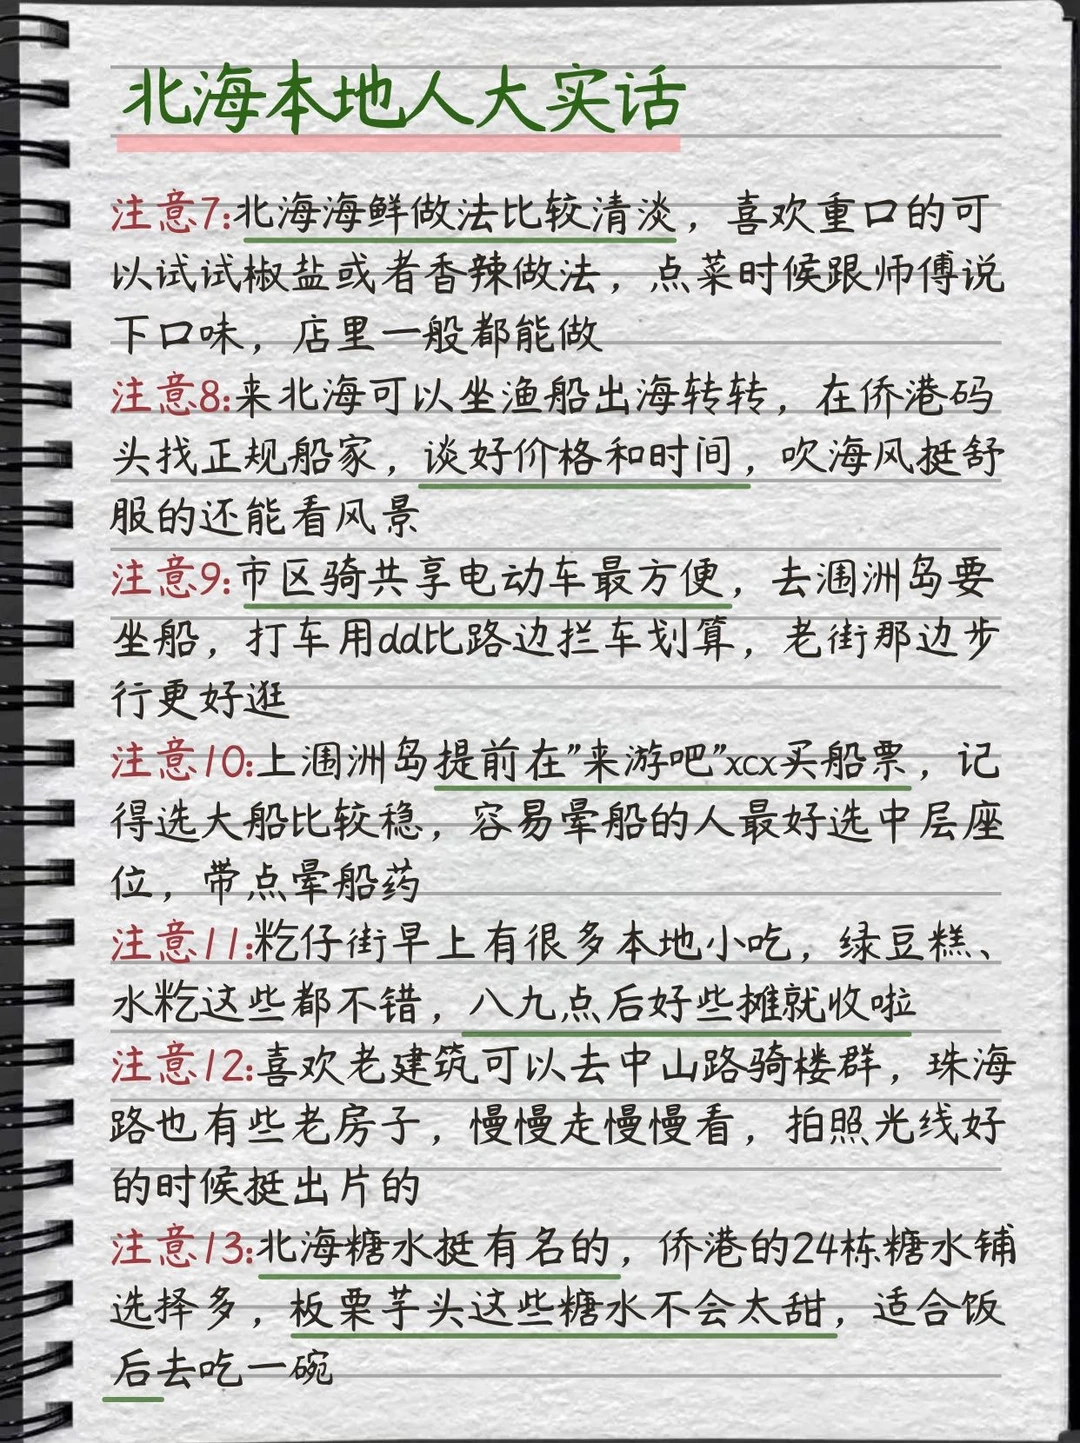 北海本地人大实话
注意7:北海海鲜做法比较清淡，喜欢重口的可
以试试椒盐或者香辣做法，点菜时候跟师傅说
下口味，店里一般都能做
注意8:来北海可以坐渔船出海转转，在侨港码
头找正规船家，谈好价格和时间，吹海风挺舒
服的还能看风景
注意9:市区骑共享电动车最方便，去涠洲岛要
坐船，打车用dd比路边拦车划算，老街那边步
行更好逛
注意10:上涠洲岛提前在"来游吧"xcx买船票，记
得选大船比较稳，容易晕船的人最好选中层座
位，带点晕船药
注意11:籺仔街早上有很多本地小吃，绿豆糕、
水籺这些都不错，八九点后好些摊就收啦
注意12:喜欢老建筑可以去中山路骑楼群，珠海
路也有些老房子，慢慢走慢慢看，拍照光线好
的时候挺出片的
注意13:北海糖水挺有名的，侨港的24栋糖水铺
选择多，板栗芋头这些糖水不会太甜，适合饭
后去吃一碗